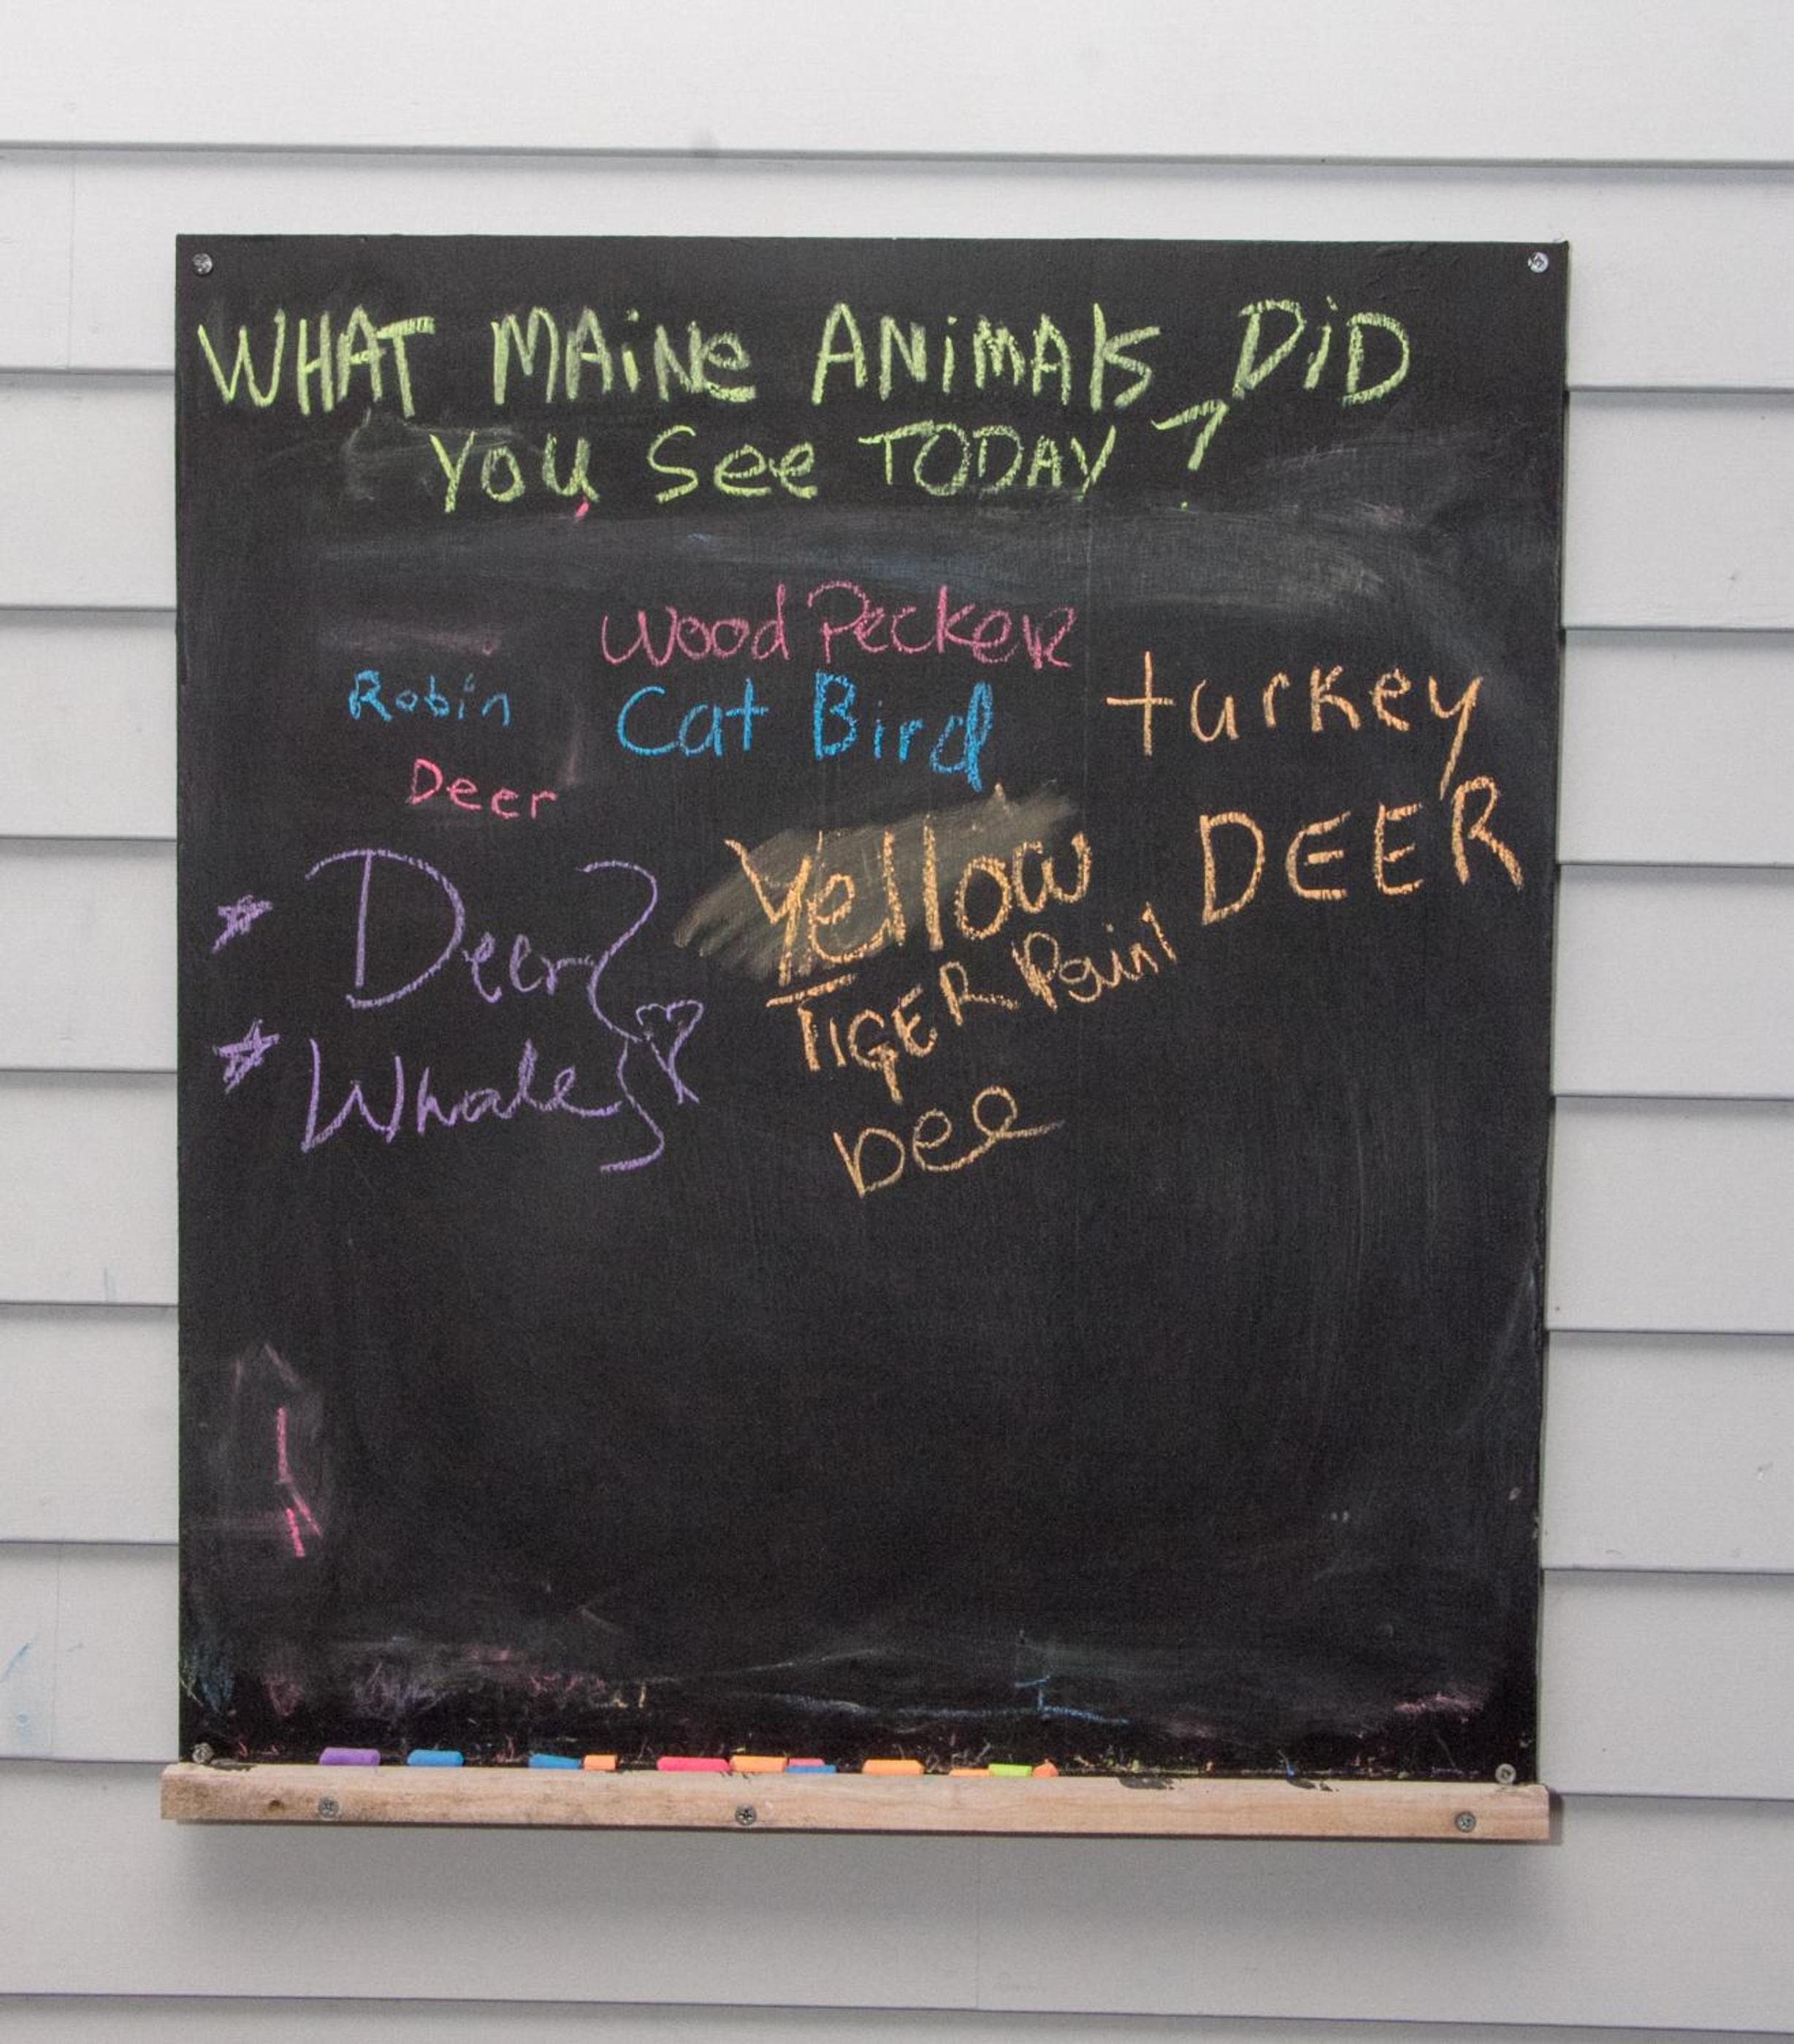 WHAT MAiNe ANiMAls DiD
YOU See TODAY?
Wood PeckeR
Robin
Cat Bird
turkey
Deer
Yellow
DEER
Deer
TIGER
Whale